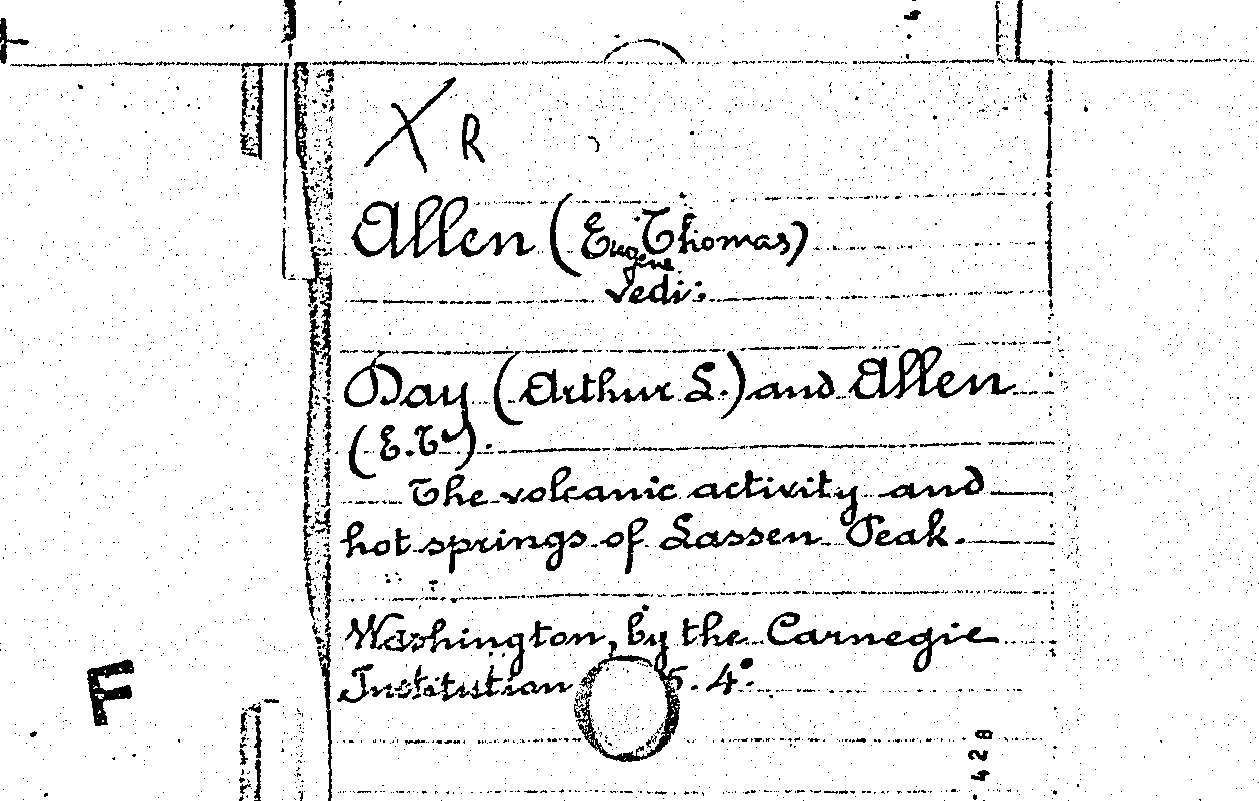 X R
Allen (Eug. Thomas)
Eugene
Vedi:
Day (Arthur L.) and Allen
(E.T.).
The volcanic activity and
hot springs of Lassen Peak.
Washington, by the Carnegie
Institution 5. 4°.
F
428